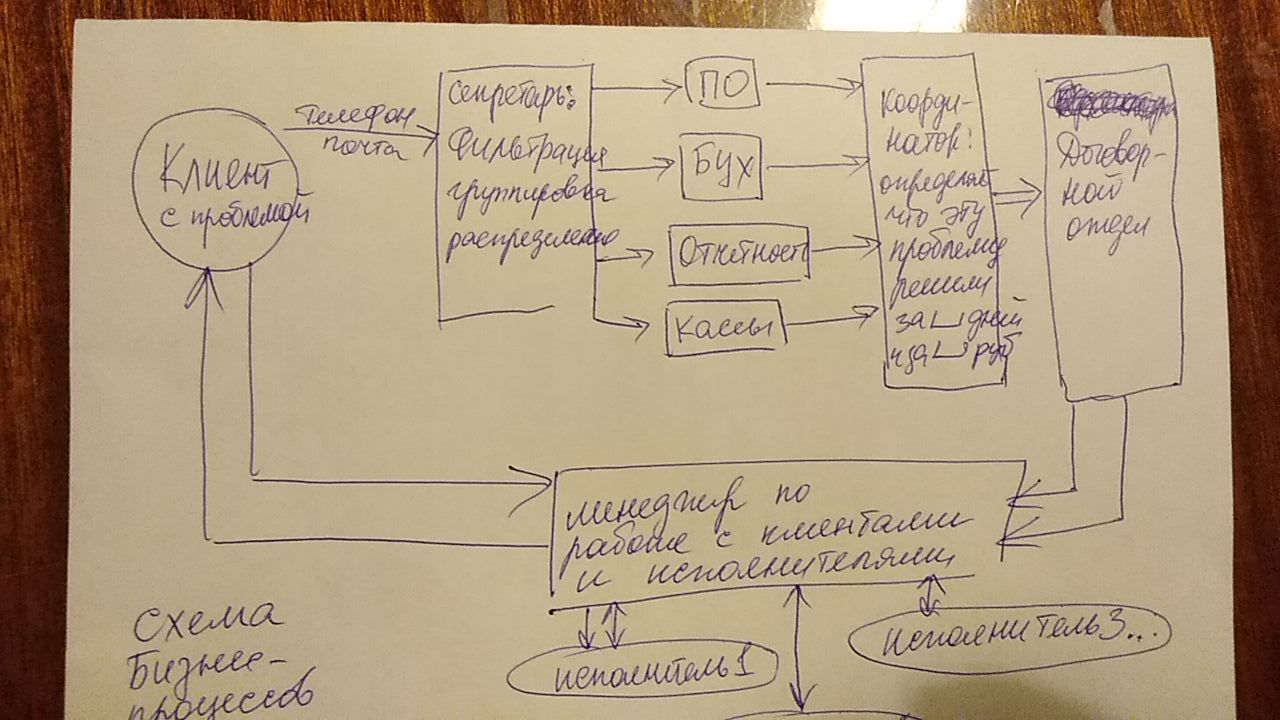 Клиент
с проблемой
Телефон
почта
Секретарь:
Фильтрация
группировка
распределение
ПО
БУХ
Отчетность
Кассы
Коорди-
натор:
определяет
что эту
проблему
решили
за дней
и за руб
Договор-
ной
отдел
менеджер по
работе с клиентами
и исполнителями
исполнитель 1
исполнитель 3...
Схема
Бизнес-
процессов